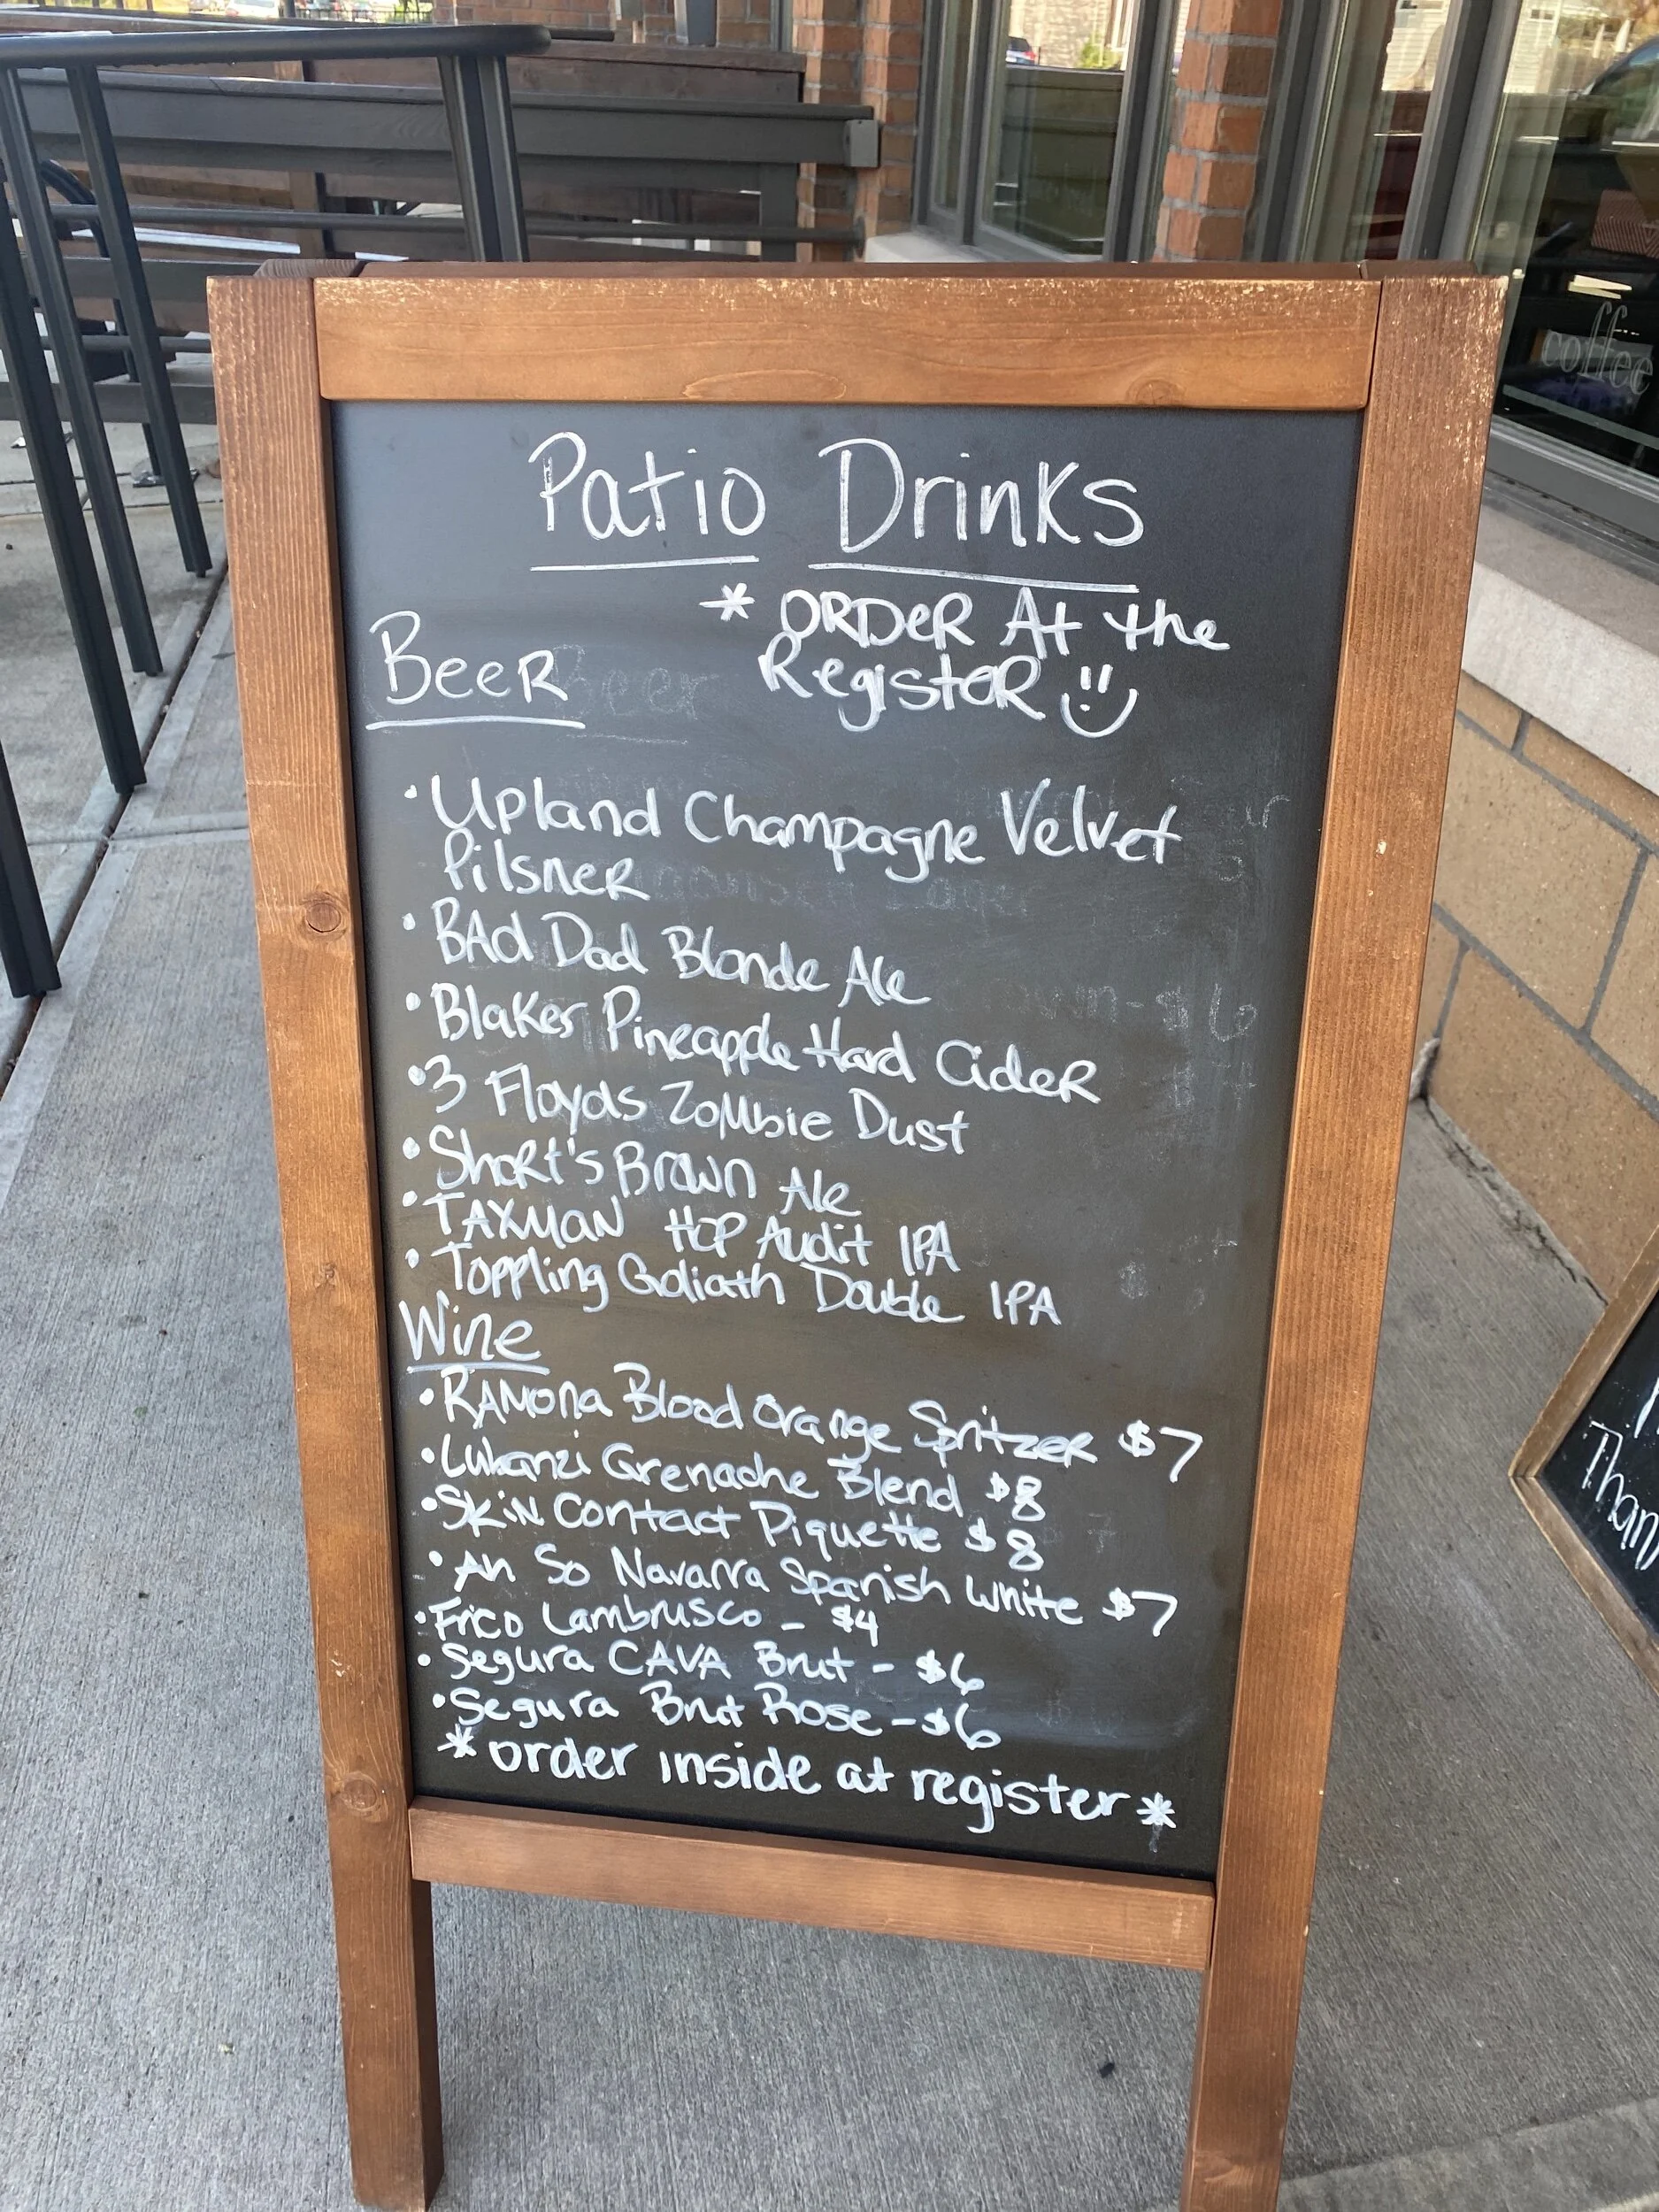 Patio Drinks
* ORDER At the
Register
Beer
• Upland Champagne Velvet
Pilsner
• BAd Dad Blonde Ale
• Blakes Pineapple Hard Cider
• 3 Floyds Zombie Dust
• Short's Brown Ale
• TAXMAN HOP Audit IPA
• Toppling Goliath Double IPA
Wine
• RAMona Blood Orange Spritzer $7
• Lubanzi Grenache Blend $8
• Skin Contact Piquette $8
• An So Navarra Spanish White $7
• Frico Lambrusco - $4
• Segura CAVA Brut - $6
• Segura Brut Rose - $6
* order inside at register *
coffee